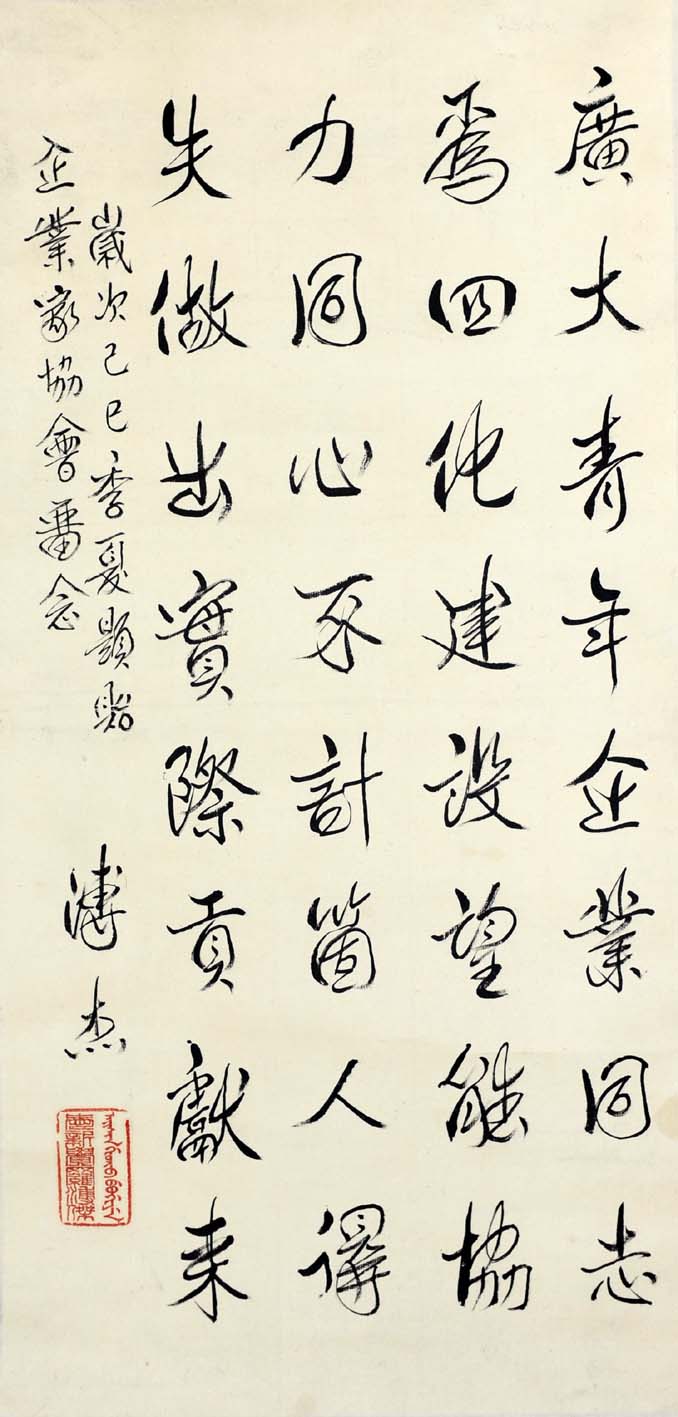 廣大青年企業同志
爲四化建設望能協
力同心不計箇人得
失做出實際貢獻来
歲次己巳季夏題贈
企業家協會畱念
溥杰
愛新覺羅溥傑